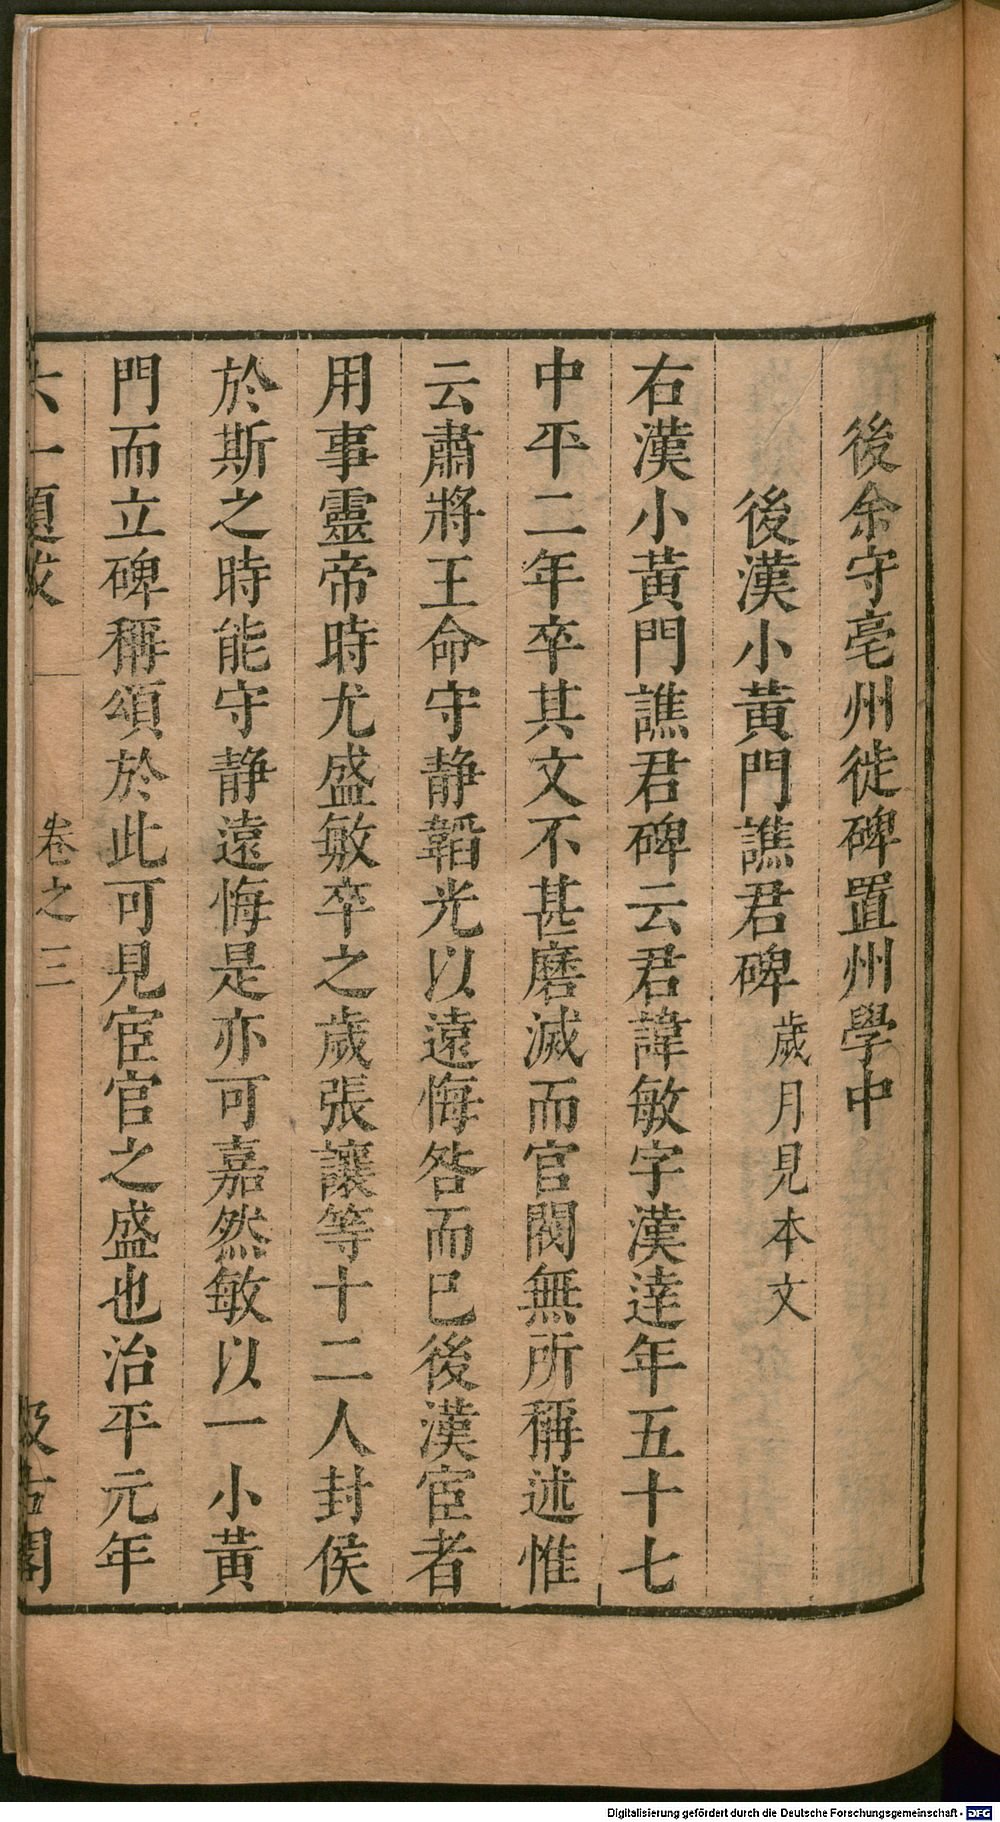 後余守亳州徙碑置州學中
後漢小黃門譙君碑歲月見本文
右漢小黃門譙君碑云君諱敏字漢達年五十七
中平二年卒其文不甚磨滅而官閥無所稱述惟
云肅將王命守静韜光以遠悔咎而已後漢宦者
用事靈帝時尤盛敏卒之歲張讓等十二人封侯
於斯之時能守静遠悔是亦可嘉然敏以一小黃
門而立碑稱頌於此可見宦官之盛也治平元年
六一題跋 卷之三 汲古閣
Digitalisierung gefördert durch die Deutsche Forschungsgemeinschaft - DFG